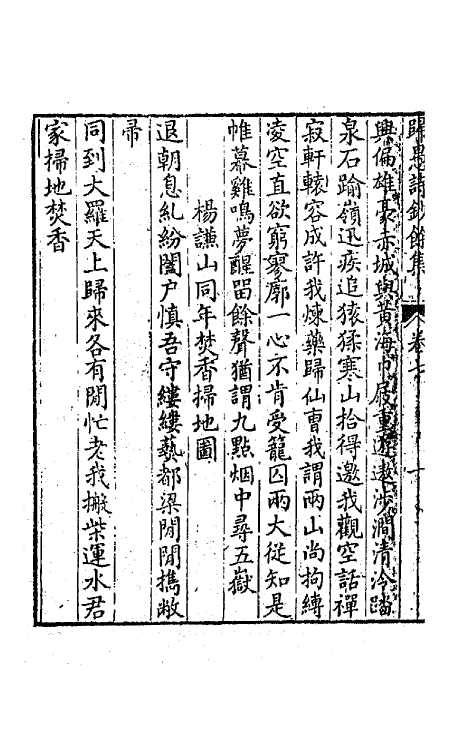 歸愚詩鈔餘集 卷七 十
興偏雄豪赤城與黃海巾屐重遊遨涉澗清泠踏
泉石踰嶺迅疾追猿猱寒山拾得邀我觀空話禪
寂軒轅容成許我煉藥歸仙曹我謂兩山尚拘縛
凌空直欲窮寥廓一心不肯受籠囚兩大從知是
帷幕雞鳴夢醒留餘聲猶謂九點烟中尋五嶽
楊謙山同年焚香掃地圖
退朝息糺紛闔户慎吾守縷縷爇都梁閒閒攜敝
帚
同到大羅天上歸來各有閒忙老我搬柴運水君
家掃地焚香